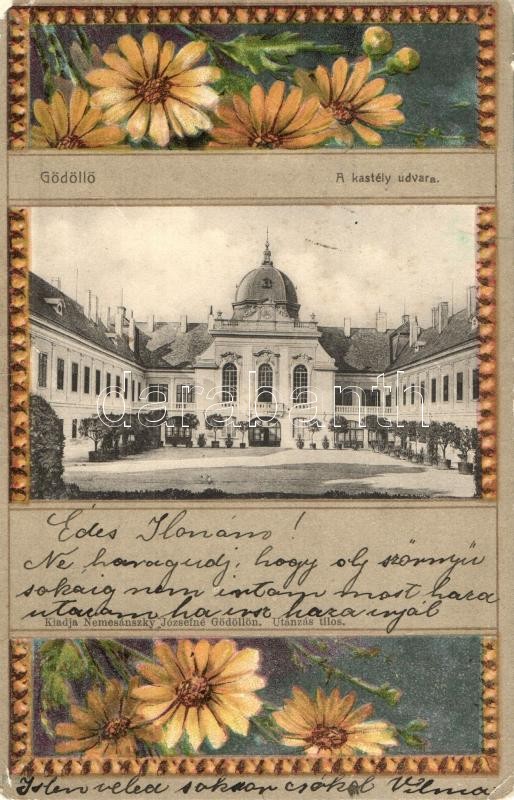 Gödöllő
A kastély udvara.
darabanth
Édes Ilonám!
Ne haragudj, hogy oly szörnyü
sokáig nem irtam most haza
utazom ha irsz haza irjál
Kiadja Nemesánszky Józsefné Gödöllőn. Utánzás tilos.
Isten veled sokszor csókol Vilma